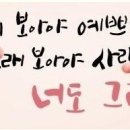 보아야 예쁘
래 보아야 사라
너도 그